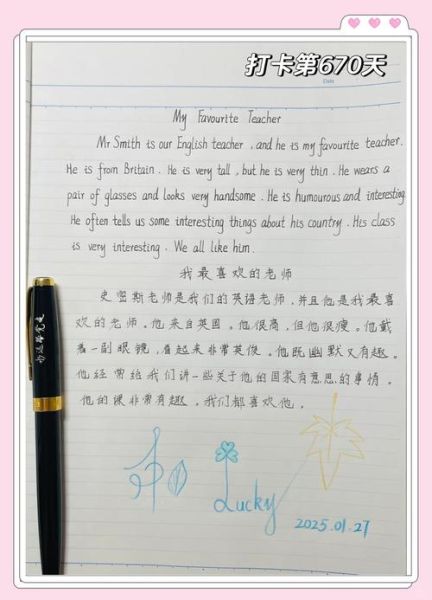 打卡第670天
Date
My Favourite Teacher
Mr Smith is our English teacher, and he is my favourite teacher.
He is from Britain. He is very tall, but he is very thin. He wears a
pair of glasses and looks very handsome. He is humourous and interesting.
He often tells us some interesting things about his country. His class
is very interesting. We all like him.
我最喜欢的老师
史密斯老师是我们的英语老师,并且他是我最喜
欢的老师。他来自英国。他很高,但他很瘦。他戴
着一副眼镜,看起来非常英俊。他既幽默又有趣。
他经常给我们讲一些关于他的国家有意思的事情。
他的课非常有趣。我们都喜欢他。
Lucky
2025.01.27